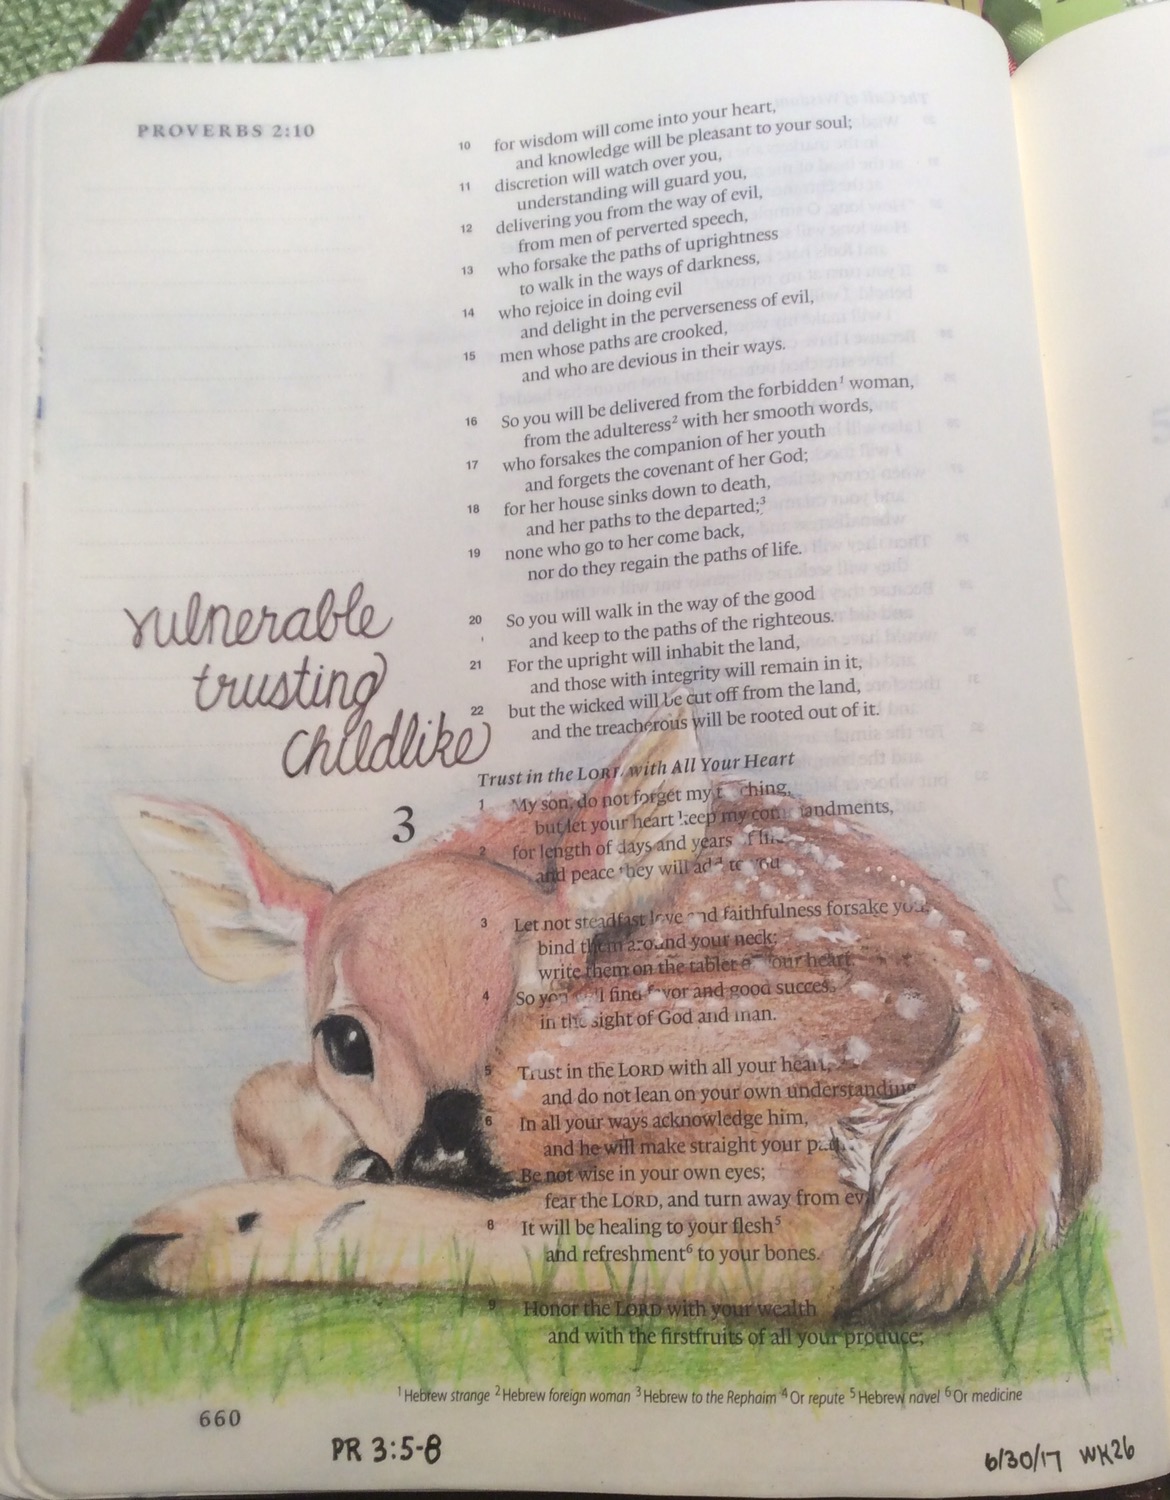 PROVERBS 2:10
10 for wisdom will come into your heart,
and knowledge will be pleasant to your soul;
11 discretion will watch over you,
understanding will guard you,
12 delivering you from the way of evil,
from men of perverted speech,
13 who forsake the paths of uprightness
to walk in the ways of darkness,
14 who rejoice in doing evil
and delight in the perverseness of evil,
15 men whose paths are crooked,
and who are devious in their ways.
16 So you will be delivered from the forbidden¹ woman,
from the adulteress² with her smooth words,
17 who forsakes the companion of her youth
and forgets the covenant of her God;
18 for her house sinks down to death,
and her paths to the departed;³
19 none who go to her come back,
nor do they regain the paths of life.
20 So you will walk in the way of the good
and keep to the paths of the righteous.
21 For the upright will inhabit the land,
and those with integrity will remain in it,
22 but the wicked will be cut off from the land,
and the treacherous will be rooted out of it.
vulnerable
trusting
childlike
Trust in the LORD with All Your Heart
3
1 My son, do not forget my teaching,
but let your heart keep my commandments,
2 for length of days and years of life
and peace they will add to you
3 Let not steadfast love and faithfulness forsake you
bind them around your neck;
write them on the tablet of your heart.
4 So you will find favor and good success
in the sight of God and man.
5 Trust in the LORD with all your heart,
and do not lean on your own understanding
6 In all your ways acknowledge him,
and he will make straight your
Be not wise in your own eyes;
fear the LORD, and turn away from evil
8 It will be healing to your flesh⁵
and refreshment⁶ to your bones.
9 Honor the LORD with your wealth
and with the firstfruits of all your produce;
¹ Hebrew strange ² Hebrew foreign woman ³ Hebrew to the Rephaim ⁴ Or repute ⁵ Hebrew navel ⁶ Or medicine
660
PR 3:5-8
6/30/17 WK26